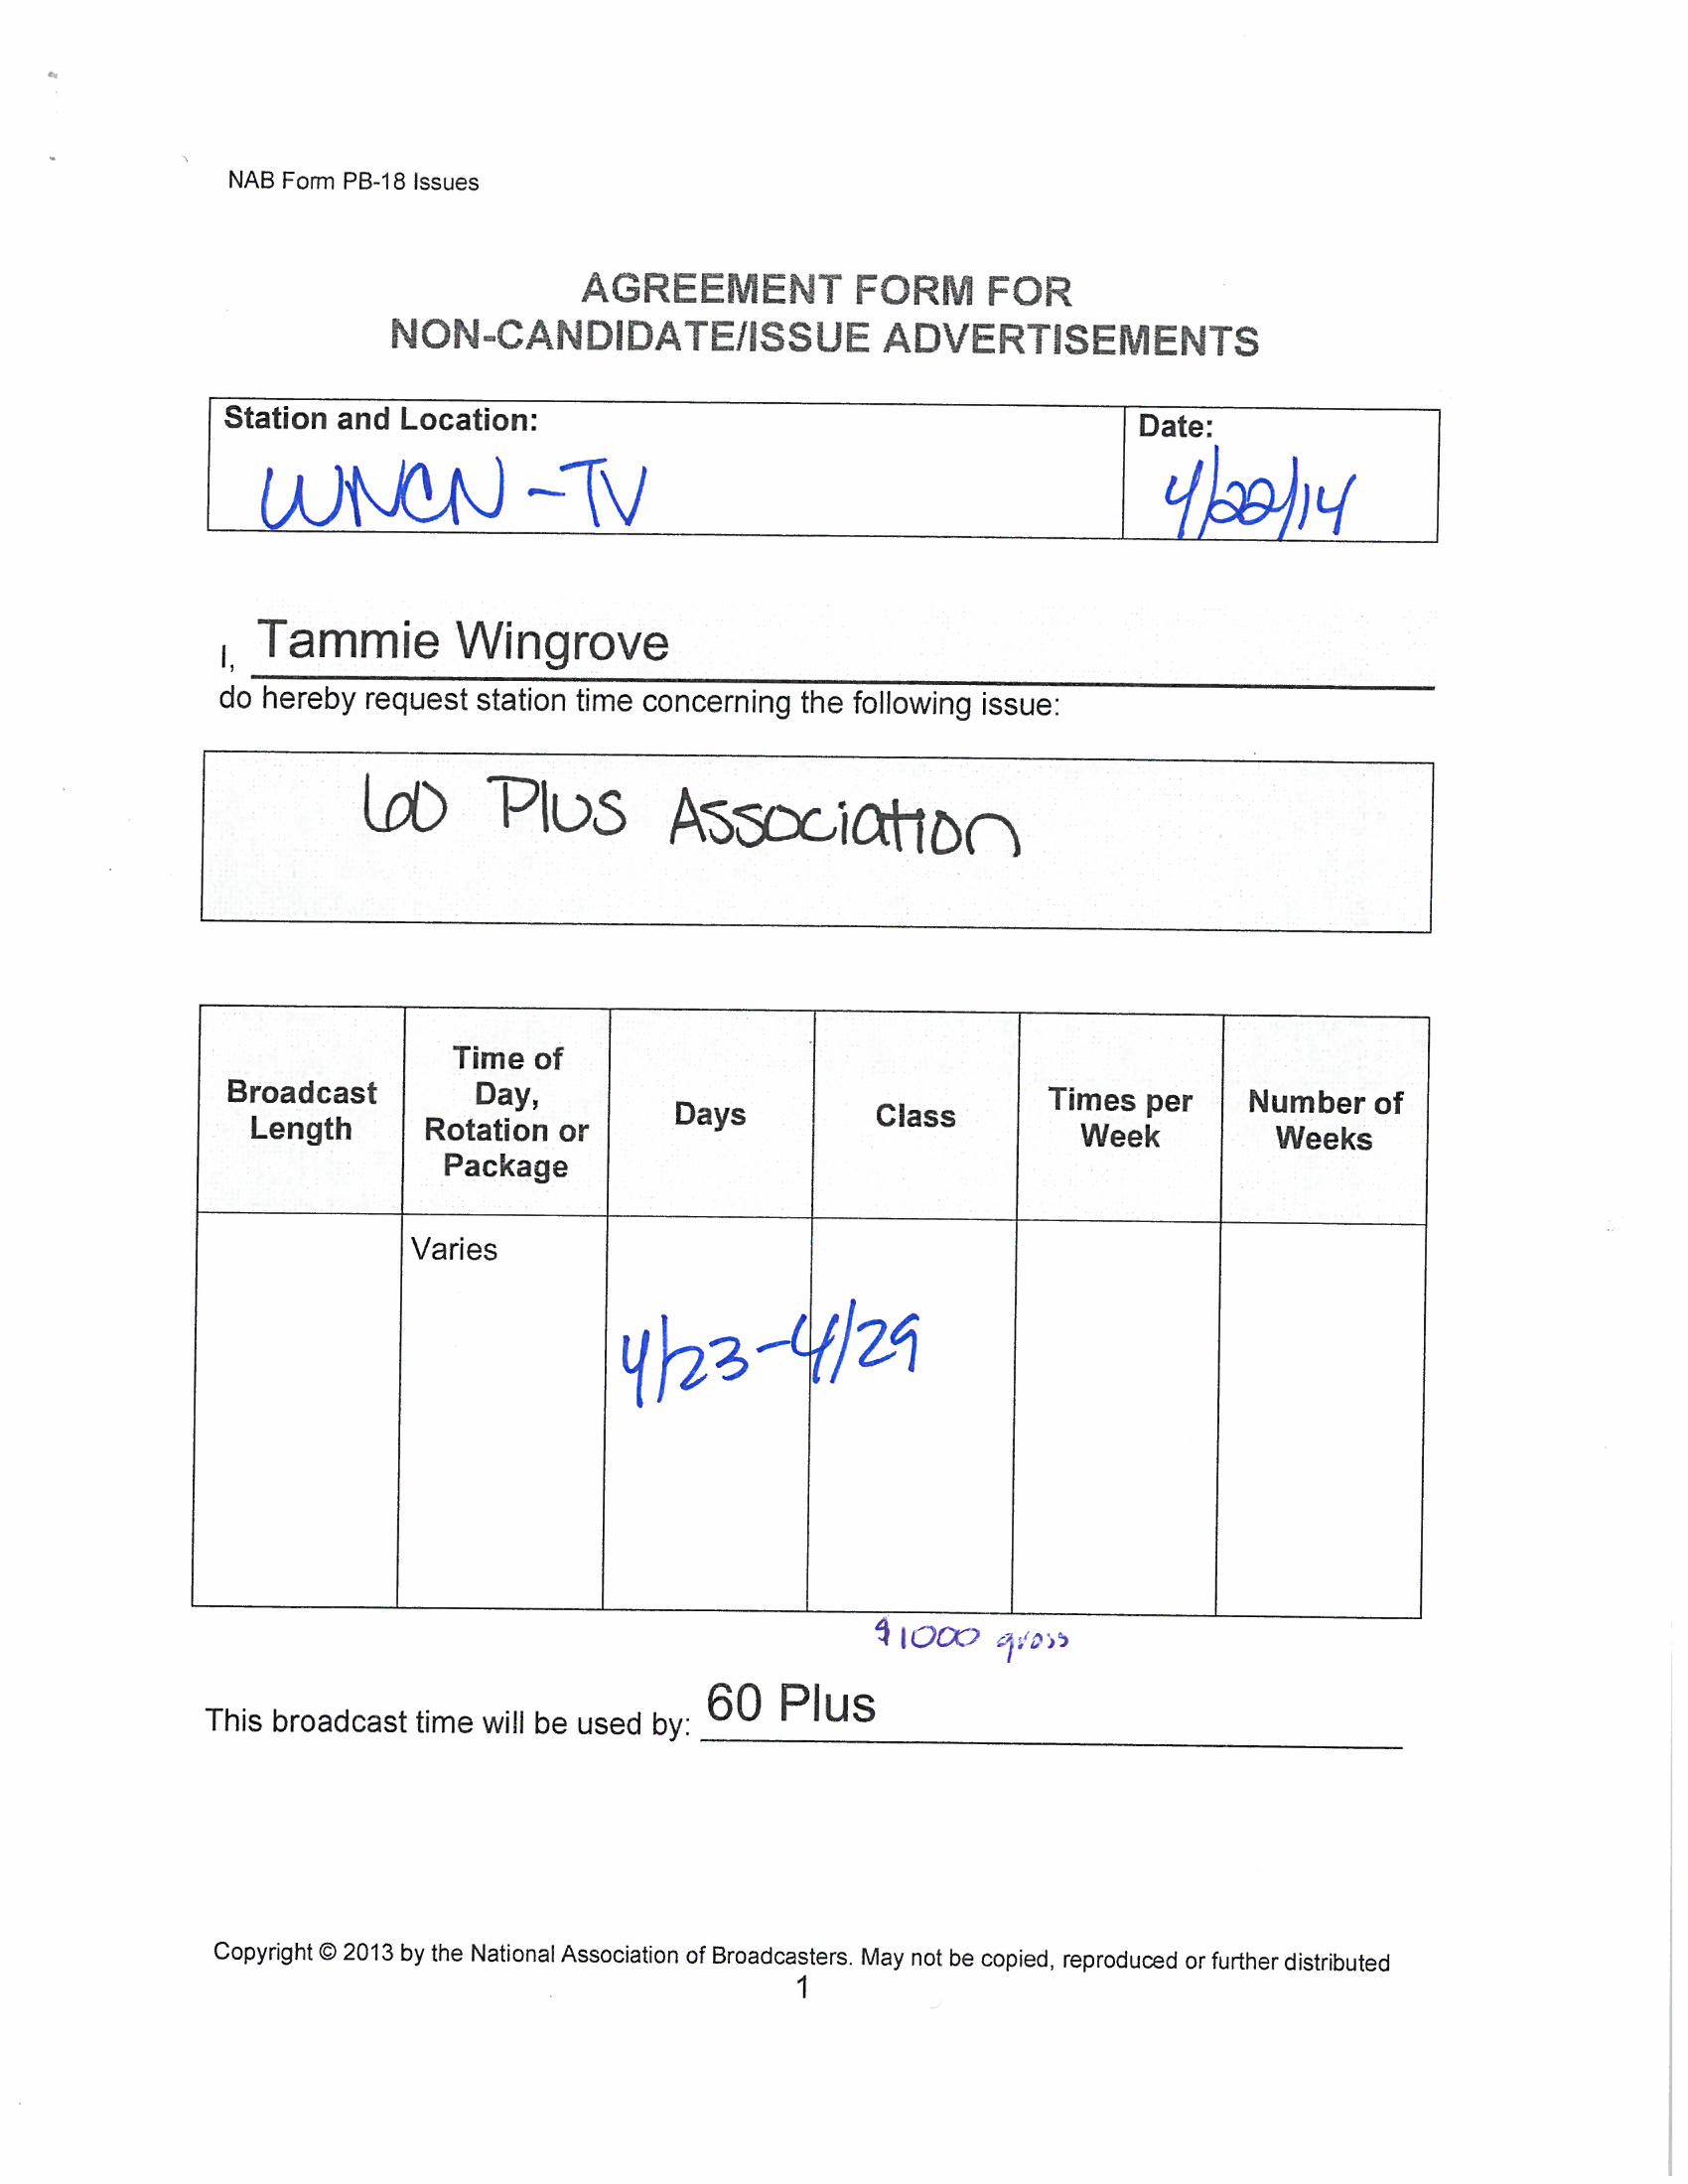 NAB Form PB-18 Issues
AGREEMENT FORM FOR
NON-CANDIDATE/ISSUE ADVERTISEMENTS
Station and Location:
Date:
WNCN-TV
4/22/14
I, Tammie Wingrove
do hereby request station time concerning the following issue:
60 Plus Association
Broadcast Length
Time of Day, Rotation or Package
Days
Class
Times per Week
Number of Weeks
Varies
4/23-4/29
$1000 gross
This broadcast time will be used by: 60 Plus
Copyright © 2013 by the National Association of Broadcasters. May not be copied, reproduced or further distributed
1